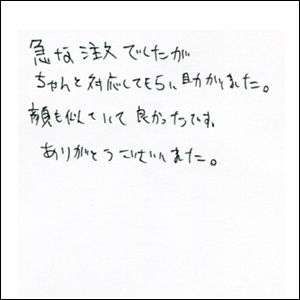 急な注文でしたが
ちゃんと対応してもらい助かりました。
顔も似ていて良かったです。
ありがとうございました。